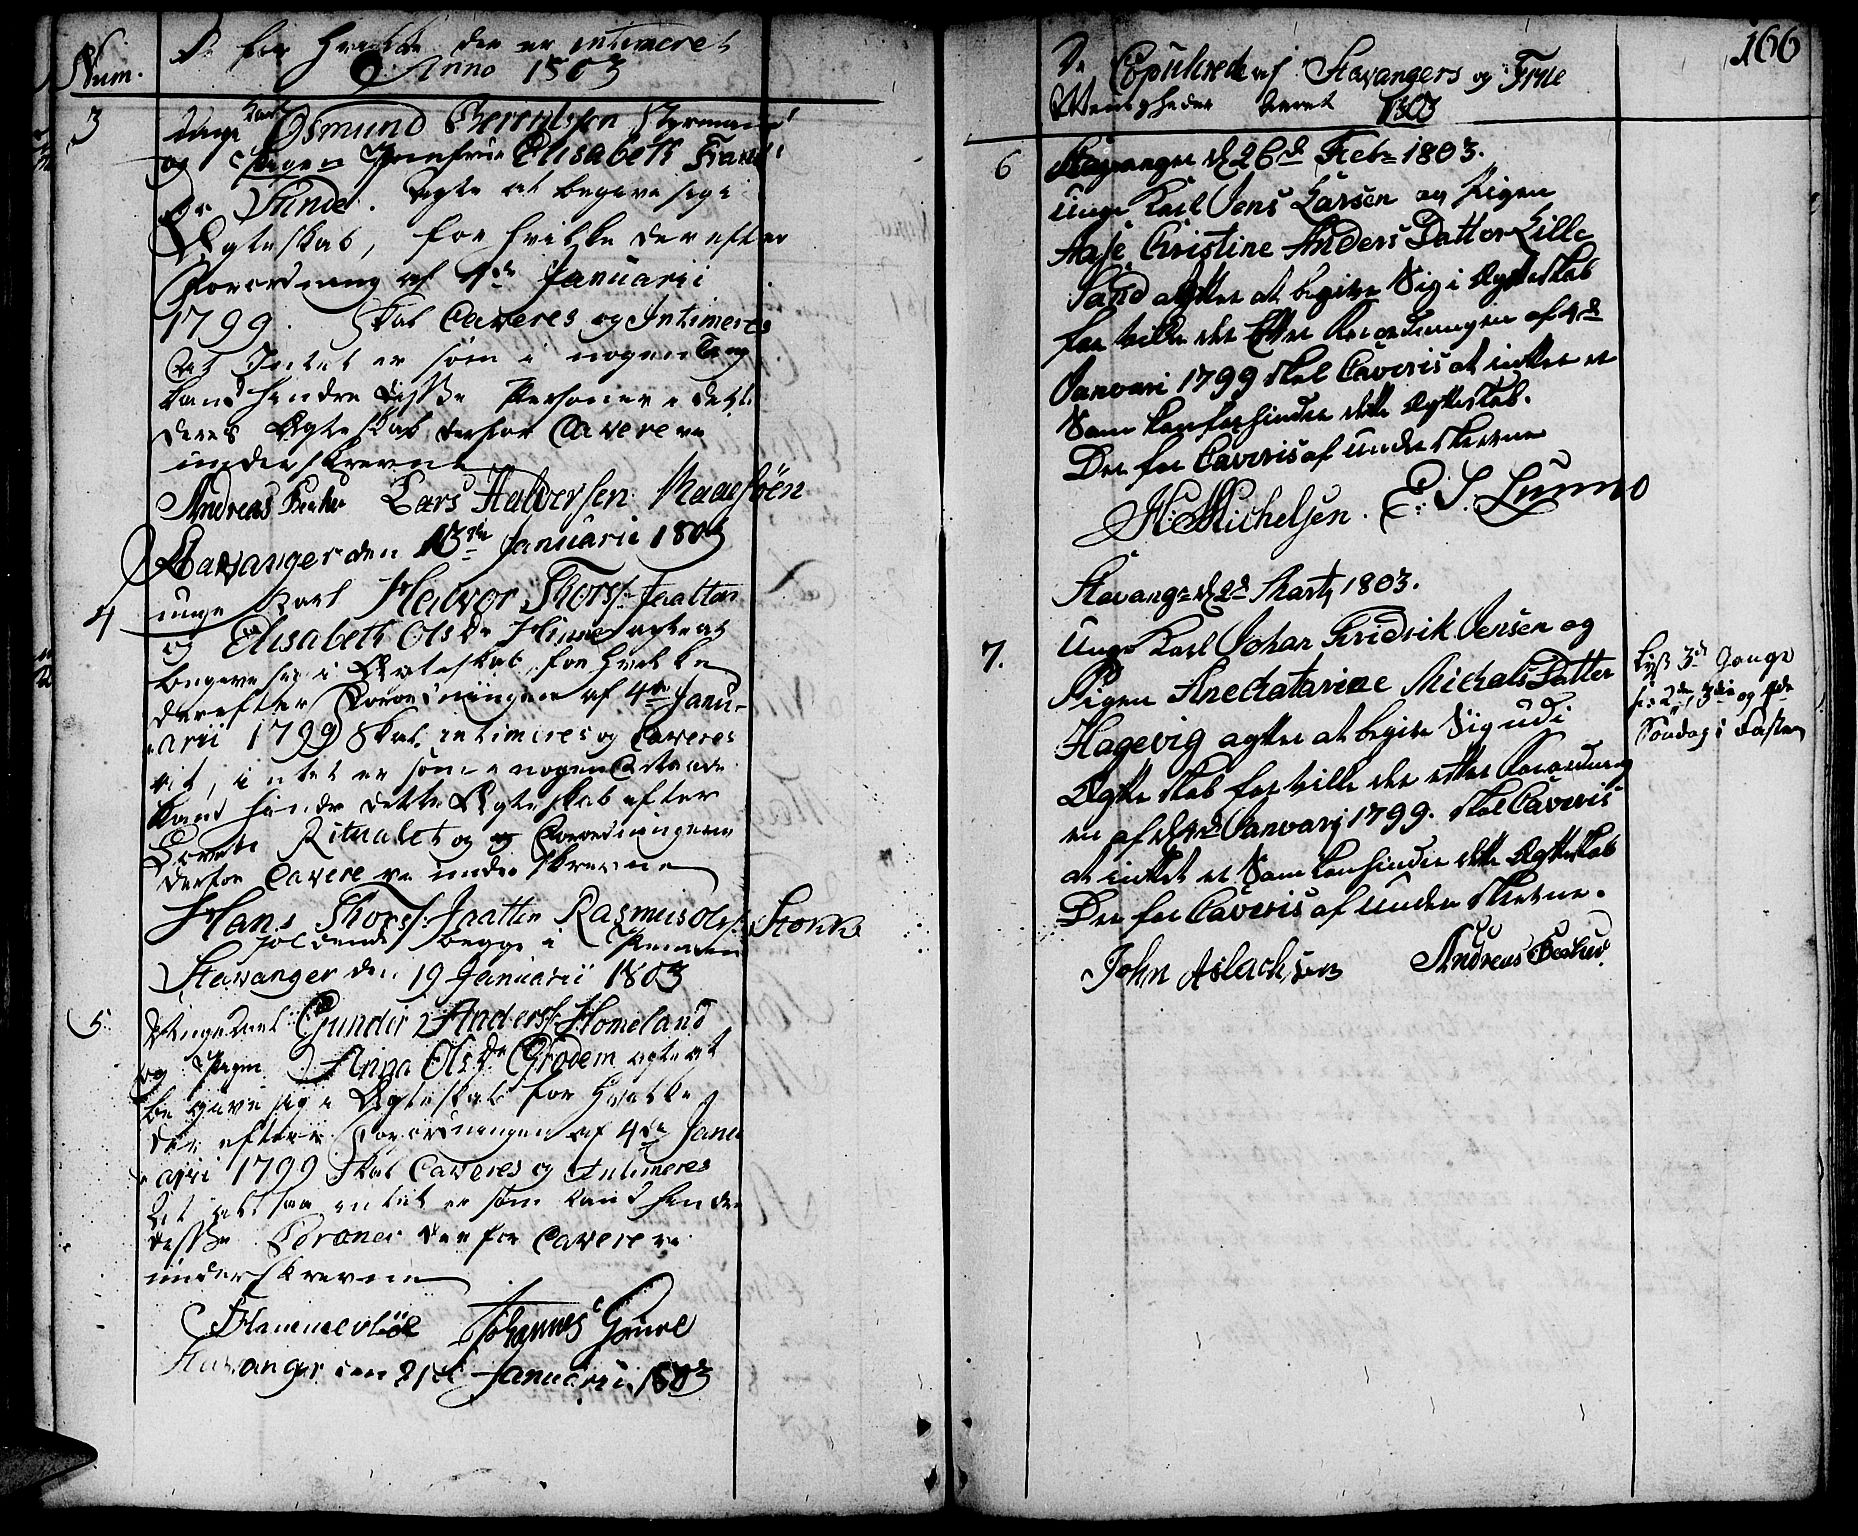 Num.
De for hvilke der er intimeret
Anno 1803
3
unge Karl Osmund Berentsen Styrmand
og Pigen Jomfrue Elisabeth
Sunde. agte at begive sig i
Ægteskab, for hvilke der efter
Forordning af 4de Januarii
1799. skal Caveres og Intimeres
at Intet er som i nogen
kand hindre disse Personer i
deres Ægteskab derfor Cavere vi
underskrevne
Andreas Becker Lars Halversen Maasjöen
Stavanger den 13de Januarii 1803
4
unge Karl Halvor Thorss. Jaatten
og Elisabeth Olsdr Hinne agte at
begive sig i Ægteskab, for hvilke
derefter Forordningen af 4de Janu-
arii 1799 skal intimeres og Caveres
at, intet er som i nogen
kand hindre dette Ægteskab efter
Lovens Ritualet og og Forordningerne
derfor Cavere vi underskrevne
Hans Thorss. Jaatten Rasmus Olss. Stokke
holdende begge i Pennen
Stavanger den 19 Januarii 1803
5
Unge Karl Gunder Anderss. Homeland
og Pigen Anna Olsdr Grödem agte at
begive sig i Ægteskab for hvilke
der efter Forordningen af 4de Janu
arii 1799 skal Caveres og Intimeres
at intet er som kand hindre
disse Personer derfor Cavere vi
underskrevne
Johannes
Stavanger den 21de Januarii 1803
166
De Copulerede af Stavangers og Frue
Menigheder Aaret 1803
6
Stavanger d 26de Febr 1803.
Unge Karl Jens Larsen og Pigen
Aase Christine Anders Datter Lille
Sand agter at begive Sig i Ægteskab
for hville der Efter Forordningen af 4de
Januari 1799 skal Caveris at intet er
Som kan forhindre dette Ægteskab.
Der for Caveris af underskrevne
H: Michelsen. E: S. Lunno
Stavanger d 2d Martj 1803.
7.
Unge Karl Johan Fridrik Jensen og
Pigen Ane Katarine Michals Datter
Hagevig agter at begive Siig udi
Ægteskab for hville der efter Forordning
en af d 4de Januarj 1799. skal Caveris
at intet er Som kan hindre dette Ægteskab
Der for Caveris af underskrevne.
John Aslachsen Andreas Becker
Lyst 3de Gange
2den, 3die og 4de
Söndag i Fasten